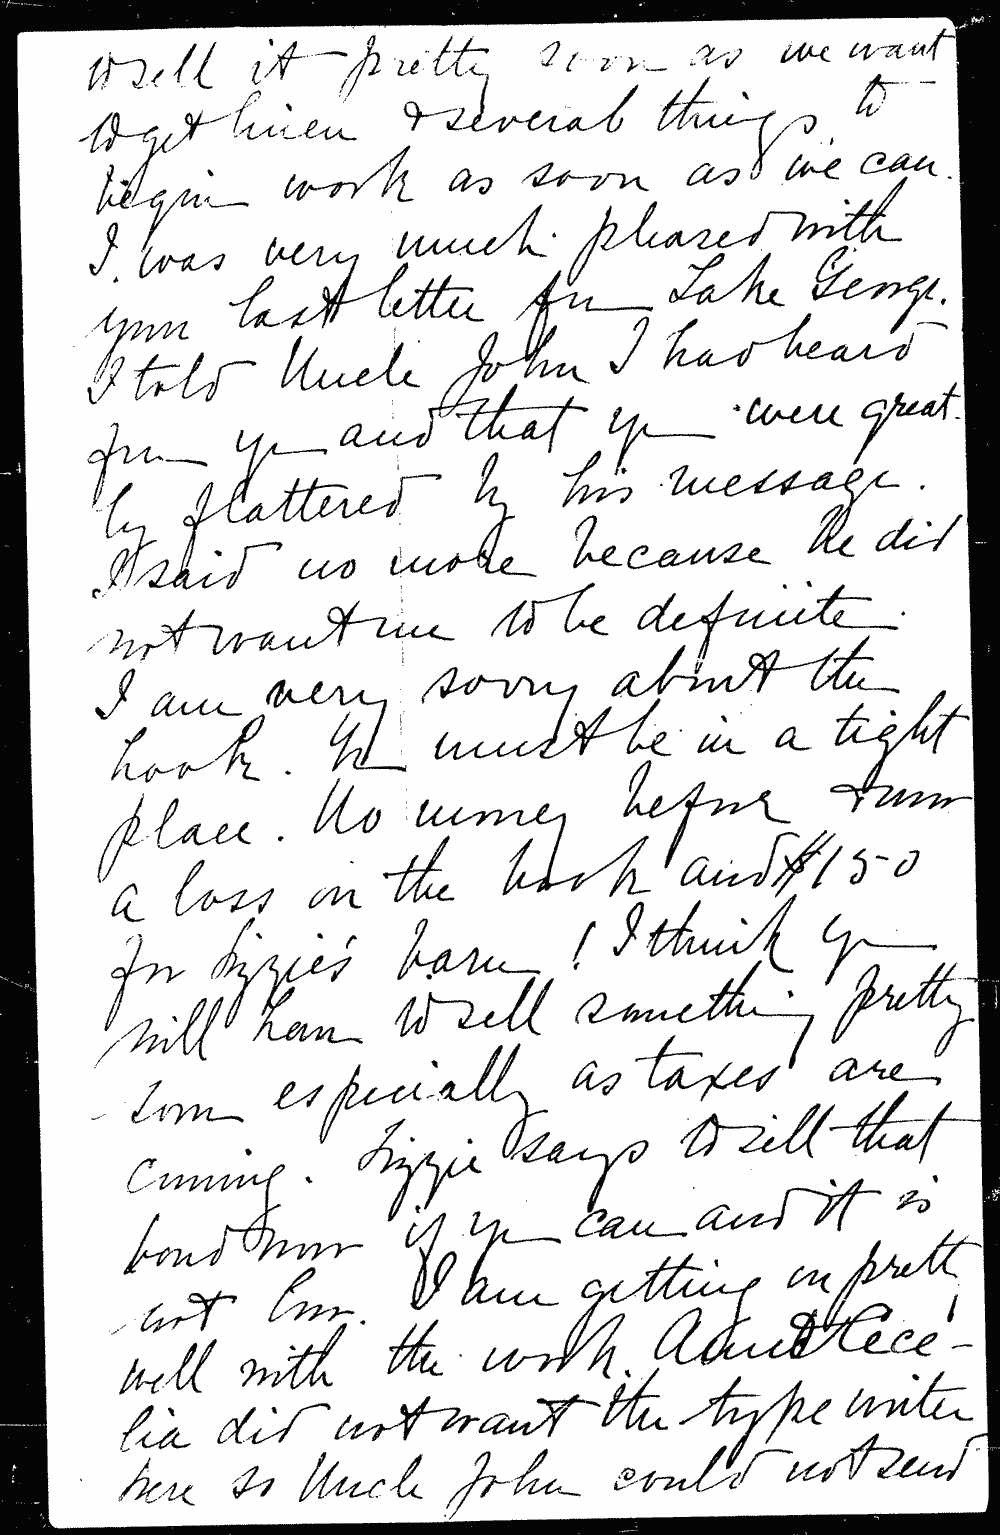 to sell it pretty soon as we want
to get linen & several things to
begin work as soon as we can.
I was very much pleased with
your last letter from Lake George.
I told Uncle John I had heard
from you and that you were great-
ly flattered by his message.
I said no more because he did
not want me to be definite.
I am very sorry about the
book. You must be in a tight
place. No money before & now
a loss on the book and $150
for Lizzie's barn! I think you
will have to sell something pretty
soon especially as taxes are
coming. Lizzie says to sell that
bond now if you can and it is
not low. I am getting on pretty
well with the work. Aunt Cece-
lia did not want the type writer
here so Uncle John could not send